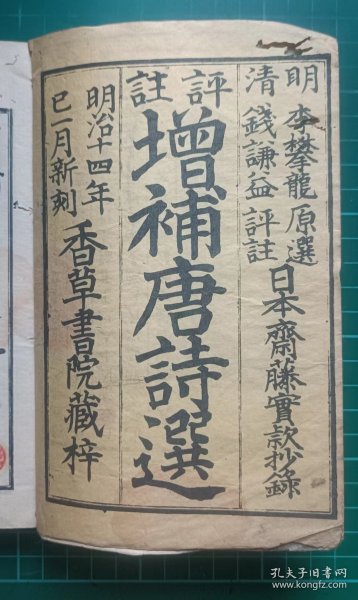 明 李攀龍原選
清 錢謙益評註
日本齋藤實欵抄錄
評註
增補唐詩選
明治十四年
巳一月新刻
香草書院藏梓
孔夫子旧书网